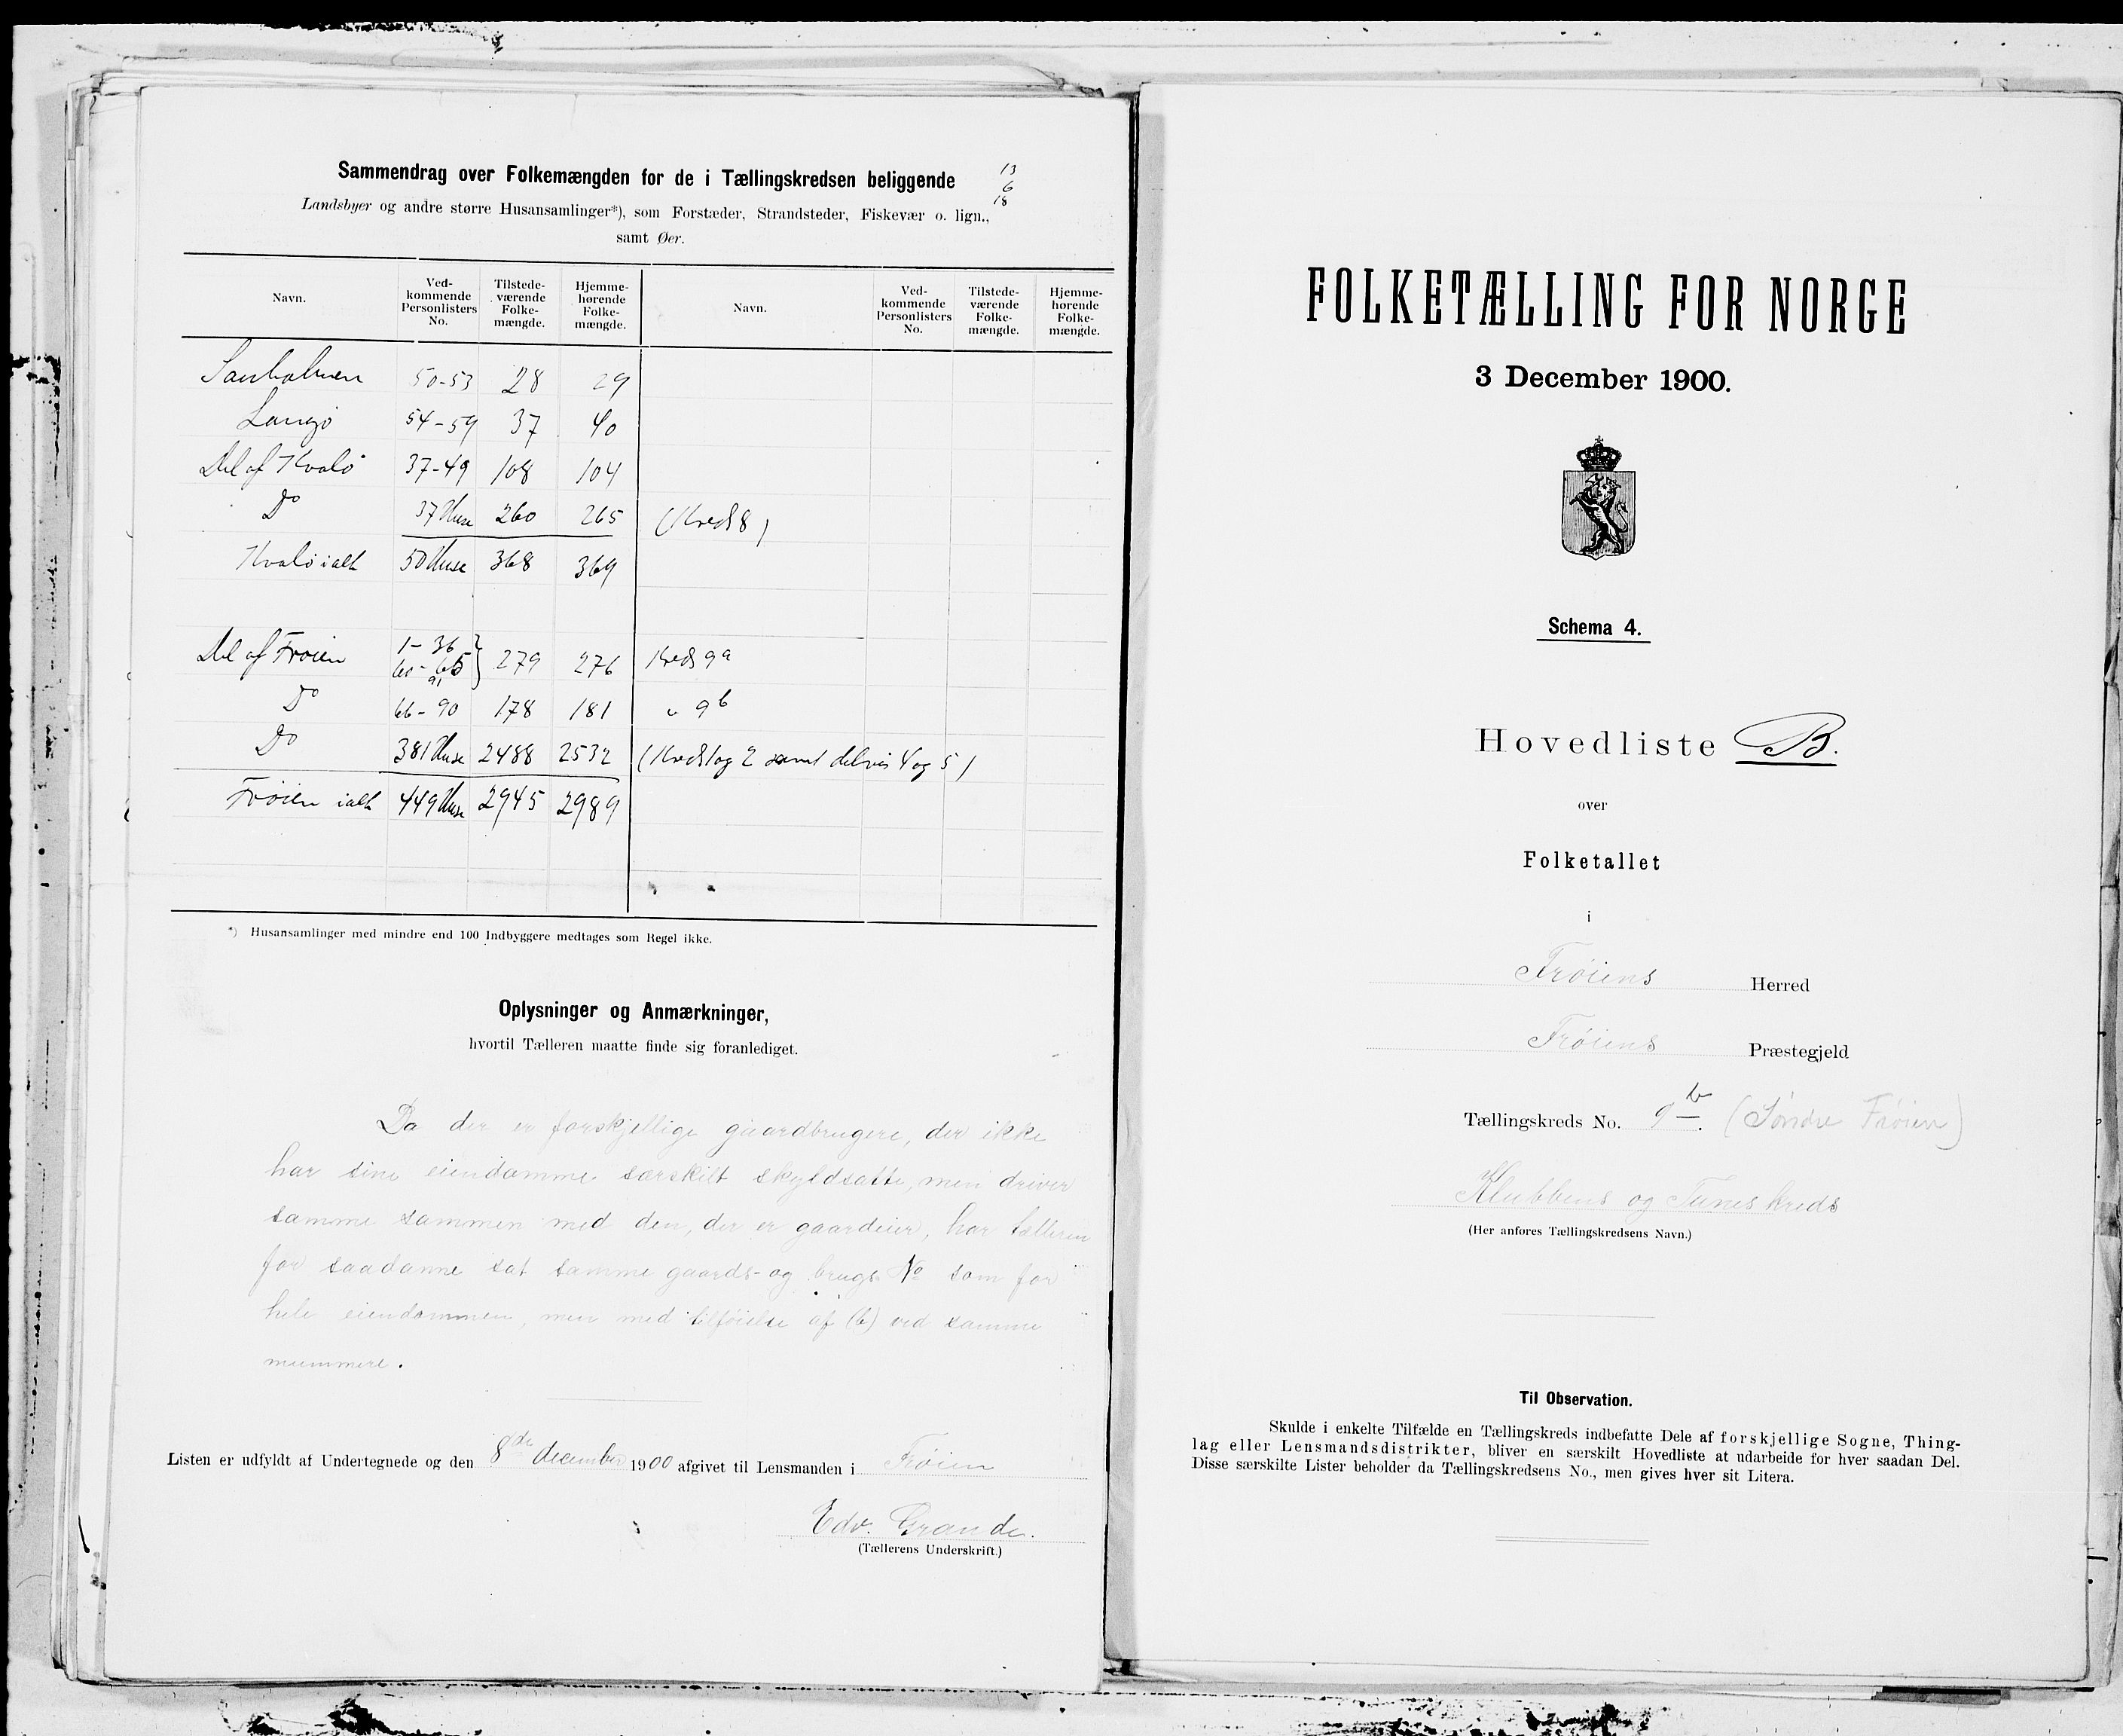 Sammendrag over Folkemængden for de i Tællingskredsen beliggende
13
6
18
Landsbyer og andre større Husansamlinger*), som Forstæder, Strandsteder, Fiskevær o. lign.,
samt Øer.
Navn. Ved-kommende Personlisters No. Tilstede-værende Folke-mængde. Hjemme-hørende Folke-mængde. Navn. Ved-kommende Personlisters No. Tilstede-værende Folke-mængde. Hjemme-hørende Folke-mængde.
50-53 28 29
Langø 54-59 37 40
Del af Kvalø 37-49 108 104
Do 37 Huse 260 265 (Kreds 8)
Kvalø ialt 50 Huse 368 369
Del af Frøien 1-36 60-65 91 } 279 276 Kreds 9a
Do 66-90 178 181 " 9b
Do 381 Huse 2488 2532 (Kreds 1 og 2 samt delvis 4 og 5)
Frøien ialt 449 Huse 2945 2989
*) Husansamlinger med mindre end 100 Indbyggere medtages som Regel ikke.
Oplysninger og Anmærkninger,
hvortil Tælleren maatte finde sig foranlediget.
Da der er forskjellige gaardbrugere, der ikke
har sine eiendomme særskilt skyldsatte, men driver
samme sammen med den, der er gaardeier, har tælleren
for saadanne sat samme gaards- og brugs No som for
hele eiendommen, men med tilføielse af (b) ved samme
nummere.
Listen er udfyldt af Undertegnede og den 8de december 1900 afgivet til Lensmanden i Frøien
Edv. Grande.
(Tællerens Underskrift.)
FOLKETÆLLING FOR NORGE
3 December 1900.
Schema 4.
Hovedliste B.
over
Folketallet
i
Frøiens Herred
Frøiens Præstegjeld
Tællingskreds No. 9b. (Søndre Frøien)
Klubbens og Tunes kreds
(Her anføres Tællingskredsens Navn.)
Til Observation.
Skulde i enkelte Tilfælde en Tællingskreds indbefatte Dele af forskjellige Sogne, Thing-
lag eller Lensmandsdistrikter, bliver en særskilt Hovedliste at udarbeide for hver saadan Del.
Disse særskilte Lister beholder da Tællingskredsens No., men gives hver sit Litera.